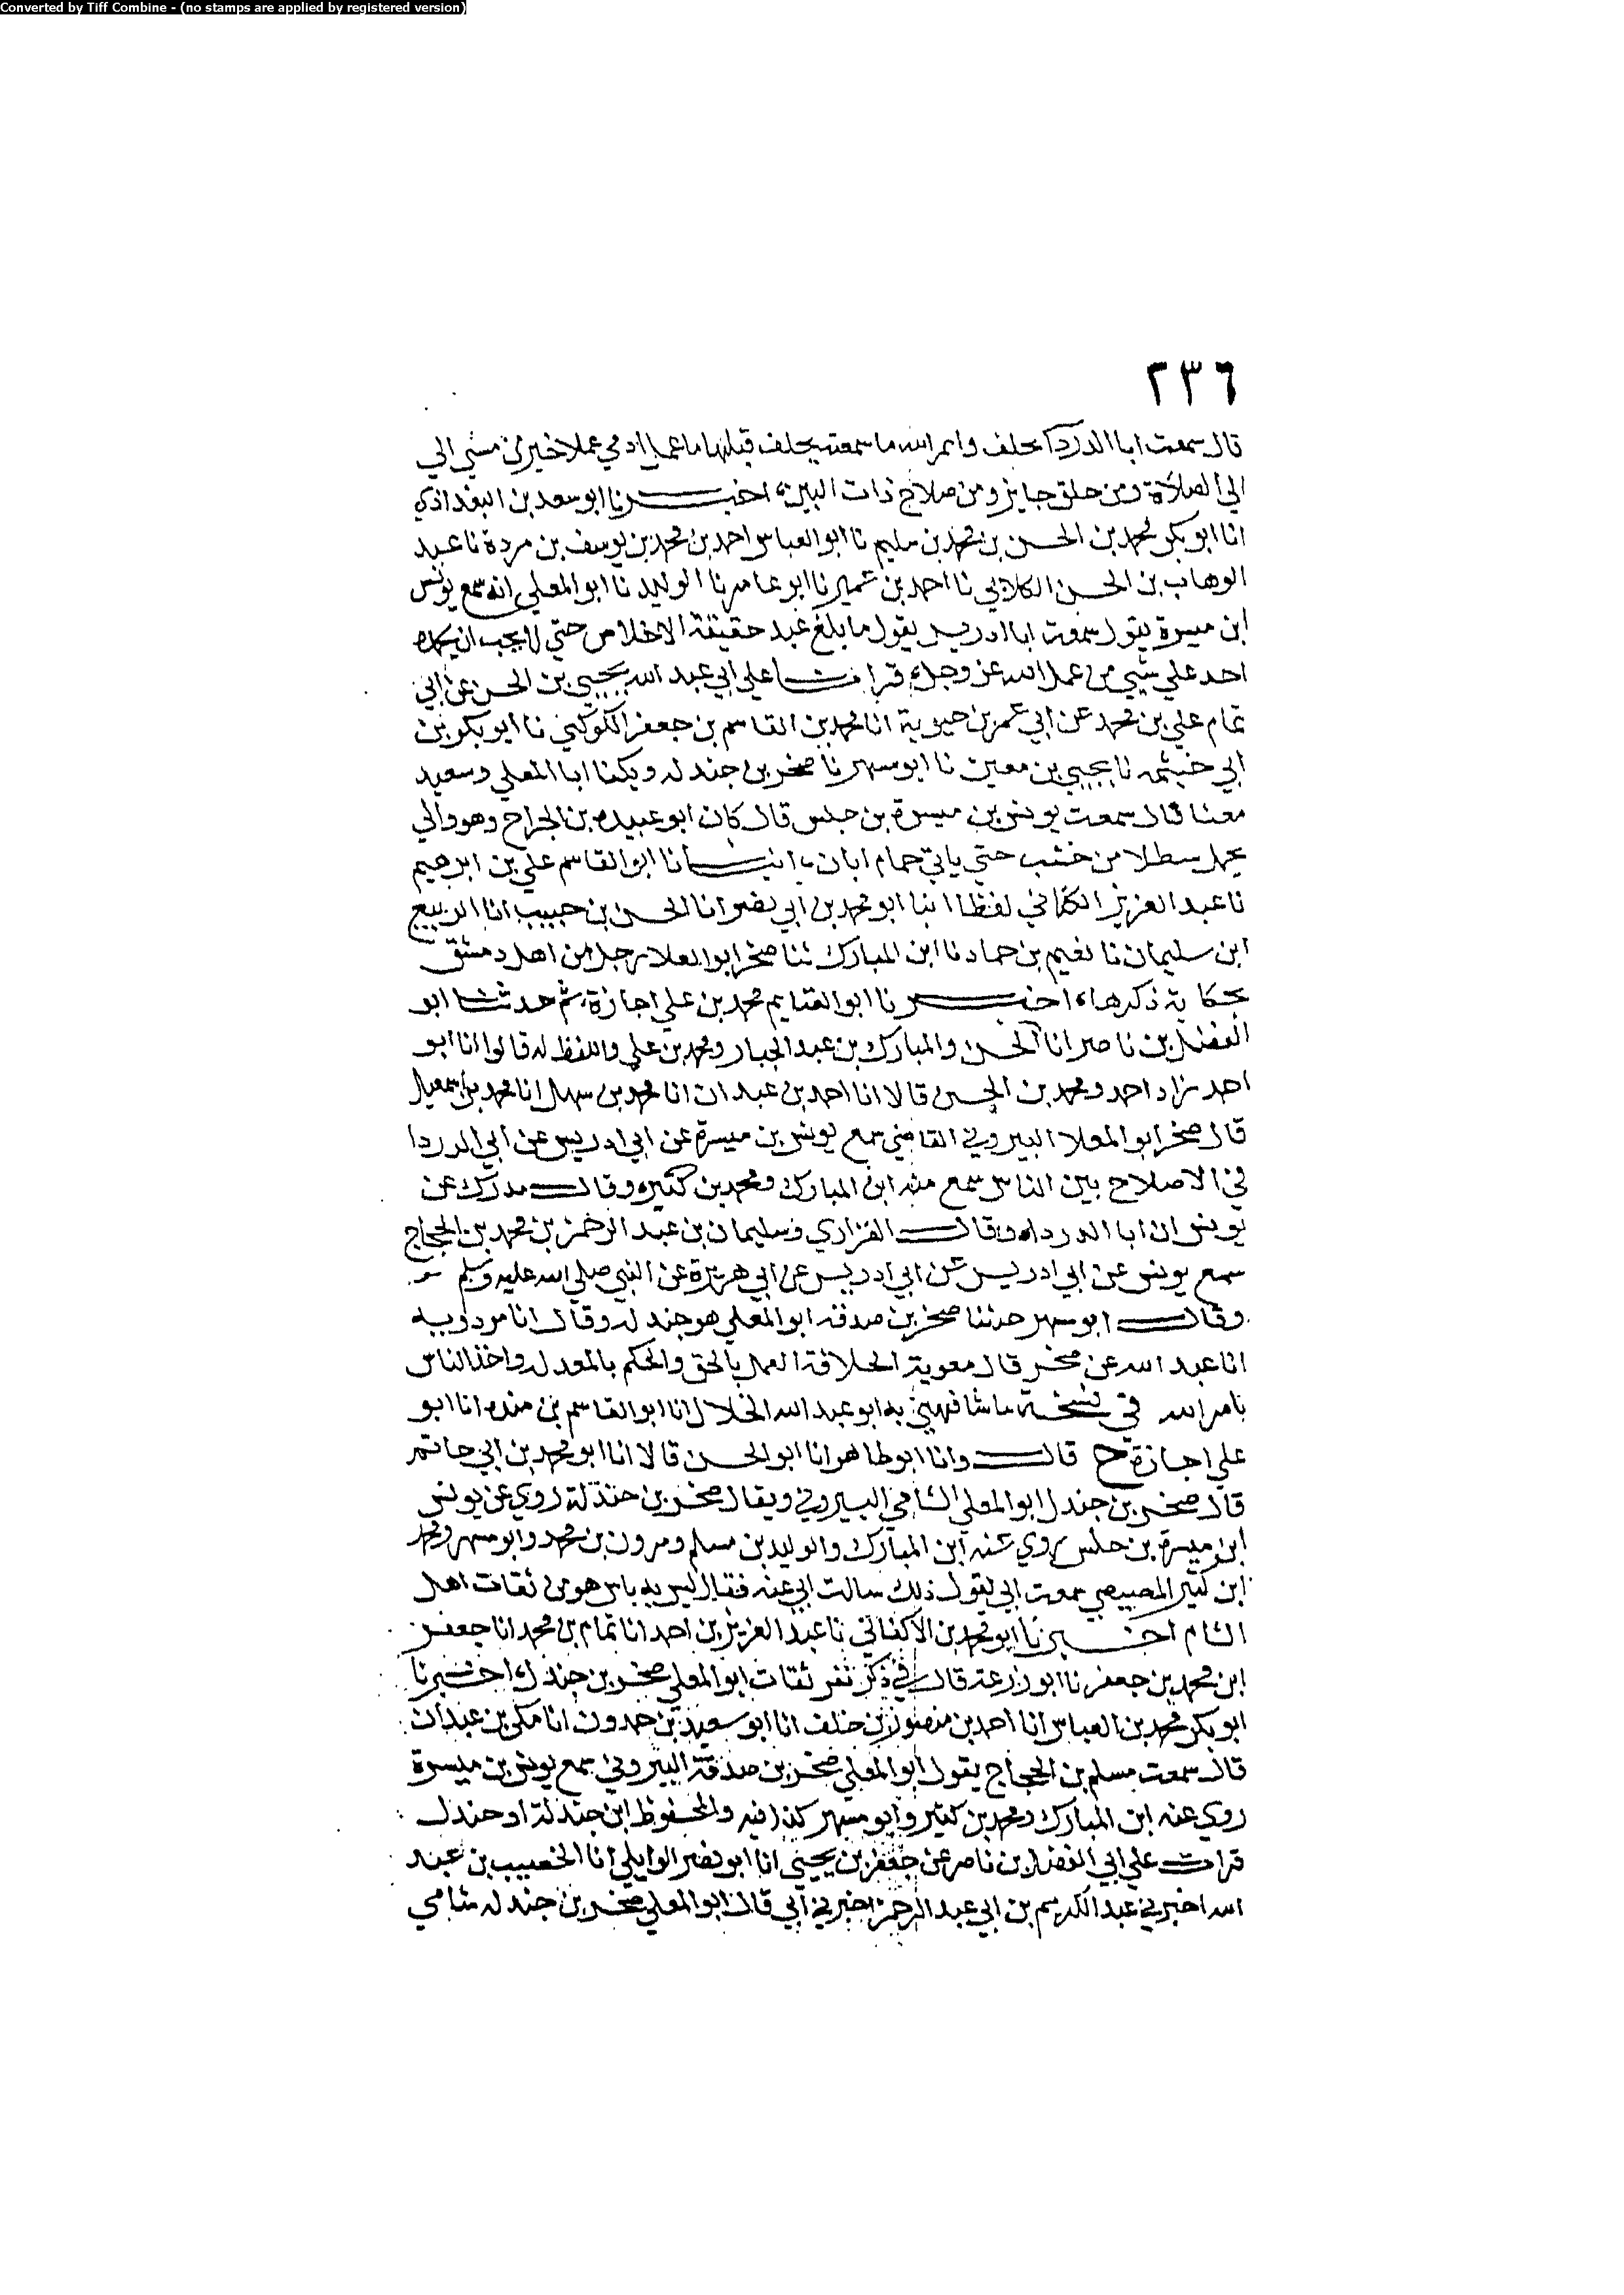 Converted by Tiff Combine - (no stamps are applied by registered version)
٢٣٦
قال سمعت ابا الدردا يحلف وايم الله ما سمعته يحلف قبلها ما عمل ادمي عملا خير من مشي الي
الي الصلاة ومن خلق جايز ومن صلاح ذات البين، اخبرنا ابو سعد بن البغدادي
انا ابو بكر محمد بن الحسن بن محمد بن سليم نا ابو العباس احمد بن محمد بن يوسف بن مردة نا عبد
الوهاب بن الحسن الكلابي نا احمد بن عمير نا ابو عامر نا الوليد نا ابو المعلي انه سمع يونس
ابن ميسرة يقول سمعت ابا ادريس يقول ما بلغ عبد حقيقة الاخلاص حتي لا يحب ان يحمده
احد علي شيي من عمل الله عز وجل، قرات علي ابي عبد الله يحيي بن الحسن عن ابي
تمام علي بن محمد عن ابي عمر بن حيوية انا محمد بن القاسم بن جعفر الكوكبي نا ابو بكر بن
ابي خيثمه نا يحيي بن معين نا ابو مسهر نا صخر بن جندله ويكنا ابا المعلي وسعيد
معنا قال سمعت يونس بن ميسرة بن حلبس قال كان ابو عبيده بن الجراح وهو والي
يحمل سطلا من خشب حتي ياتي حمام ابان، انبانا ابو القاسم علي بن ابرهيم
نا عبد العزيز الكتاني لفظا انبا ابو محمد بن ابي نصر انا الحسن بن حبيب انا الربيع
ابن سليمان نا نعيم بن حماد نا ابن المبارك ثنا صخر ابو العلا رجل من اهل دمشق
بحكاية ذكرها، اخبرنا ابو الغنايم محمد بن علي اجازة، ثم حدثنا ابو
الفضل بن ناصر انا الحسن والمبارك بن عبد الجبار ومحمد بن علي واللفظ له قالوا انا ابو
احمد زاد احمد ومحمد بن الحسن قالا انا احمد بن عبدان انا محمد بن سهل انا محمد بن اسمعيل
قال صخر ابو المعلا البيروتي القاضي سمع يونس بن ميسرة عن ابي ادريس عن ابي الدردا
في الاصلاح بين الناس سمع منه ابن المبارك ومحمد بن كثير، وقال مدرك عن
يونس ان ابا الدرداء، وقال الفزاري وسليمان بن عبد الرحمن بن محمد بن الحجاج
سمع يونس عن ابي ادريس عن ابي ادريس عن ابي هريرة عن النبي صلي الله عليه وسلم
وقال ابو مسهر حدثنا صخر بن صدقه ابو المعلي هو جندله وقال انا مردويه
انا عبد الله عن صخر قال معوية الخلافة العمل بالحق والحكم بالمعدله واخذ الناس
بامر الله في نسخة ما شافهني به ابو عبد الله الخلال انا ابو القاسم بن منده انا ابو
علي اجازة ح قال وانا ابو طاهر انا ابو الحسن قالا انا ابو محمد بن ابي حاتم
قال صخر بن جندل ابو المعلي الشامي البيروتي ويقال صخر بن جندلة روي عن يونس
ابن ميسرة بن حلبس روي عنه ابن المبارك والوليد بن مسلم ومرون بن محمد وابو مسهر ومحمد
ابن كثير المصيصي سمعت ابي يقول ذلك سالت ابي عنه فقال ليس به باس هو من ثقات اهل
الشام اخبرنا ابو محمد بن الاكفاني نا عبد العزيز بن احمد انا تمام بن محمد انا جعفر
ابن محمد بن جعفر نا ابو زرعة قال في ذكر نفر ثقات ابو المعلي صخر بن جندل، اخبرنا
ابو بكر محمد بن العباس انا احمد بن منصور بن خلف انا ابو سعيد بن حمدون انا مكي بن عبدان
قال سمعت مسلم بن الحجاج يقول ابو المعلي صخر بن صدقة البيروتي سمع يونس بن ميسرة
روي عنه ابن المبارك ومحمد بن كثير وابو مسهر كذا فيه والمحفوظ ابن جندلة او جندل
قرات علي ابي الفضل بن ناصر عن جعفر بن يحيي انا ابو نصر الوايلي انا الخصيب بن عبد
الله اخبرني عبد الكريم بن ابي عبد الرحمن اخبرني ابي قال ابو المعلي صخر بن جندله شامي